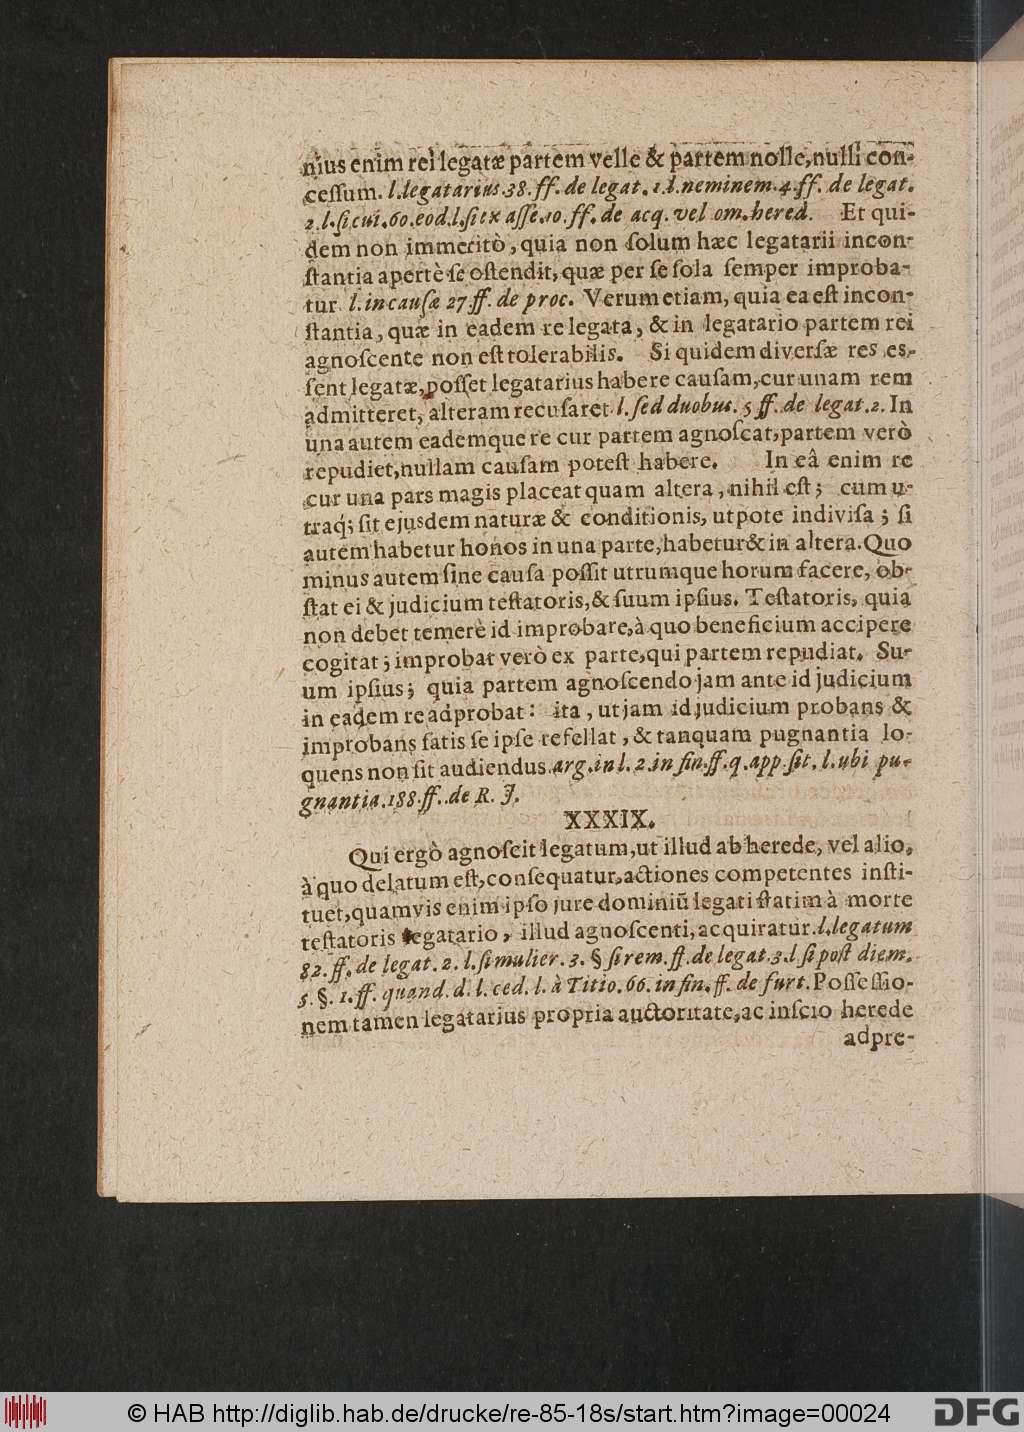 nius enim rei legatæ partem velle & partem nolle, nulli con-
cessum. l. legatarius. 38. ff. de legat. 1. l. neminem. 4. ff. de legat.
2. l. si cui. 60. eod. l. si ex asse. 10. ff. de acq. vel om. hered. Et qui-
dem non immeritò, quia non solum hæc legatarii incon-
stantia apertè se ostendit, quæ per se sola semper improba-
tur. l. in causæ 27. ff. de proc. Verum etiam, quia ea est incon-
stantia, quæ in eadem re legata, & in legatario partem rei
agnoscente non est tolerabilis. Si quidem diversæ res es-
sent legatæ, posset legatarius habere causam, cur unam rem
admitteret, alteram recusaret. l. sed duobus. 5 ff. de legat. 2. In
una autem eademque re cur partem agnoscat, partem verò
repudiet, nullam causam potest habere. In eâ enim re
cur una pars magis placeat quam altera, nihil est; cum u-
traq; sit ejusdem naturæ & conditionis, utpote indivisa; si
autem habetur honos in una parte, habetur & in altera. Quo
minus autem sine causa possit utrumque horum facere, ob-
stat ei & judicium testatoris, & suum ipsius. Testatoris, quia
non debet temerè id improbare, à quo beneficium accipere
cogitat; improbat verò ex parte, qui partem repudiat. Su-
um ipsius; quia partem agnoscendo jam ante id judicium
in eadem re adprobat: ita, ut jam id judicium probans &
improbans satis se ipse refellat, & tanquam pugnantia lo-
quens non sit audiendus. arg. in l. 2. in fin. ff. q. app. sit. l. ubi pu-
gnantia. 188. ff. de R. J.
XXXIX.
Qui ergò agnoscit legatum, ut illud ab herede, vel alio,
à quo delatum est, consequatur, actiones competentes insti-
tuet, quamvis enim ipso jure dominiū legati statim à morte
testatoris legatario, illud agnoscenti, acquiratur. l. legatum
82. ff. de legat. 2. l. si mulier. 3. § si rem. ff. de legat. 3. l. si post diem.
5. §. 1. ff. quand. d. l. ced. l. à Titio. 66. in fin. ff. de furt. Possessio-
nem tamen legatarius propria auctoritate, ac inscio herede
adpre-
© HAB http://diglib.hab.de/drucke/re-85-18s/start.htm?image=00024
DFG